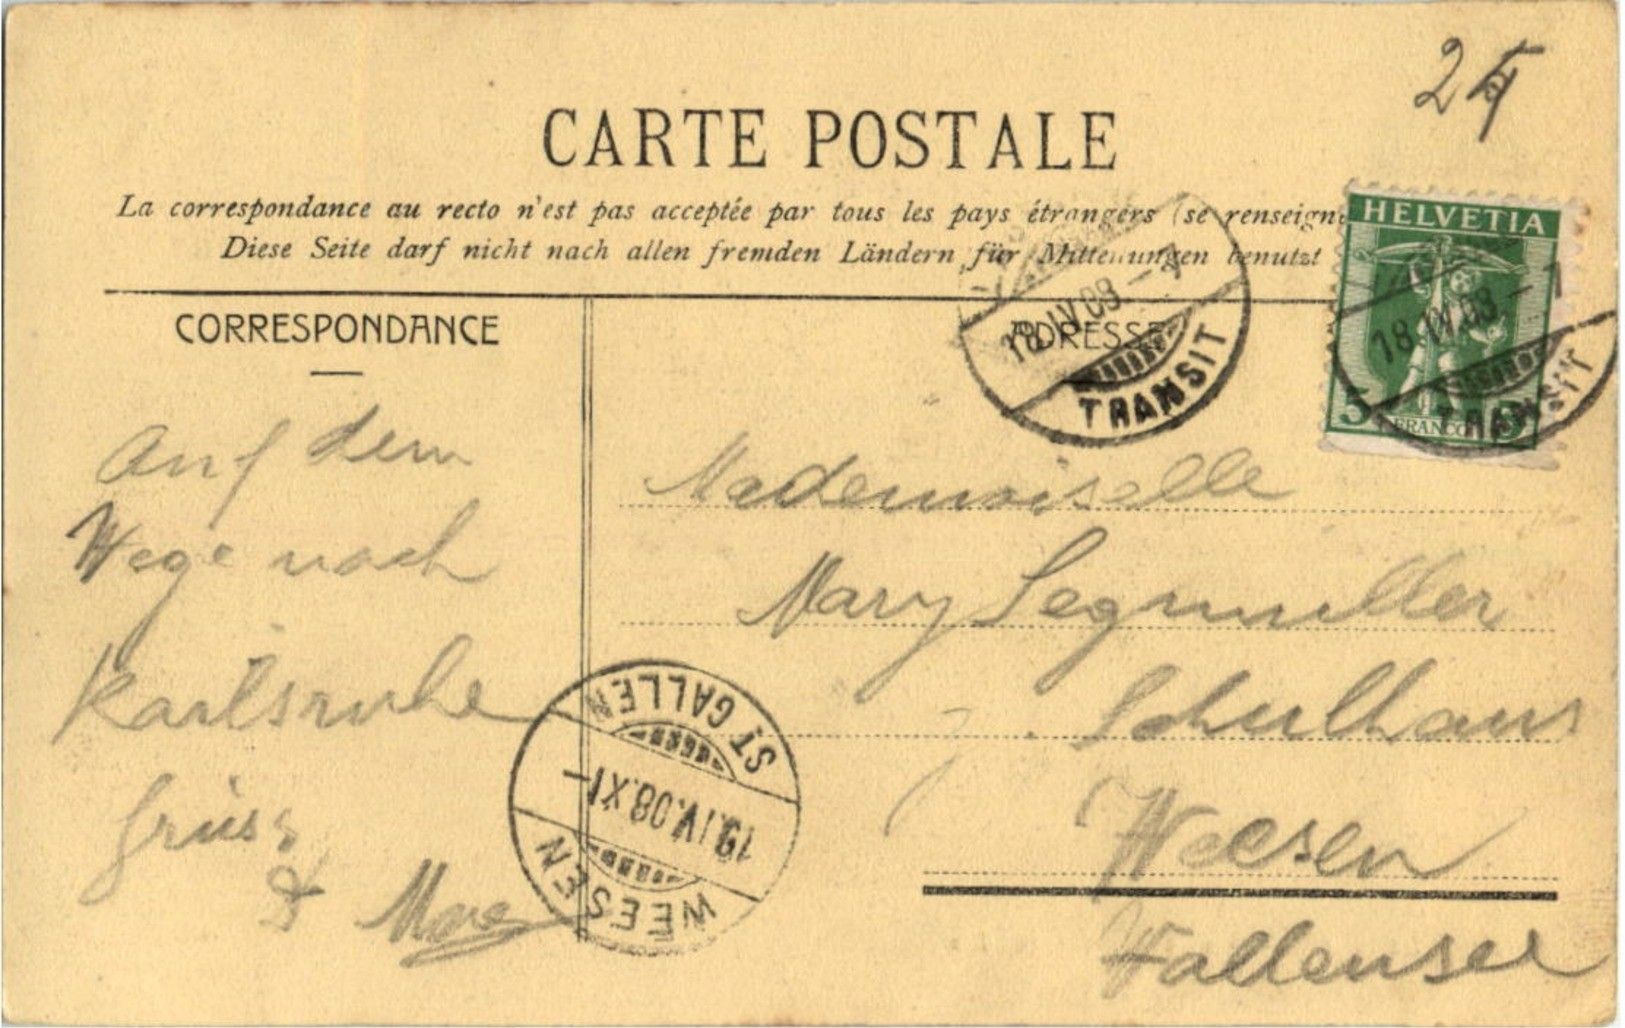 25
CARTE POSTALE
La correspondance au recto n'est pas acceptée par tous les pays étrangers (se renseigne
Diese Seite darf nicht nach allen fremden Ländern für Mitteilungen benutzt
HELVETIA
5 FRANCO 5
18.IV.08.-7
TRANSIT
18.IV.08-7
TRANSIT
CORRESPONDANCE
Auf dem
Wege nach
Karlsruhe
Grüss
ADRESSE
Mademoiselle
Mary Segmüller
Schulhaus
Weesen
Wallensee
ST GALLEN
19.IV.08.XI-
WEESEN